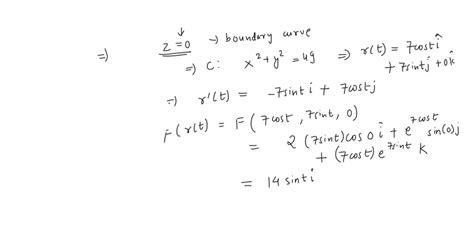 ⇒ z = 0 → boundary curve
⇒ C: x² + y² = 49 ⇒ r(t) = 7cost î
+ 7sint ĵ + 0k̂
⇒ r'(t) = -7sint i + 7cost j
F(r(t) = F(7cost, 7sint, 0)
= 2 (7sint)cos0 i + e^7cost sin(0) j
+ (7cost) e^7sint K
= 14 sint i